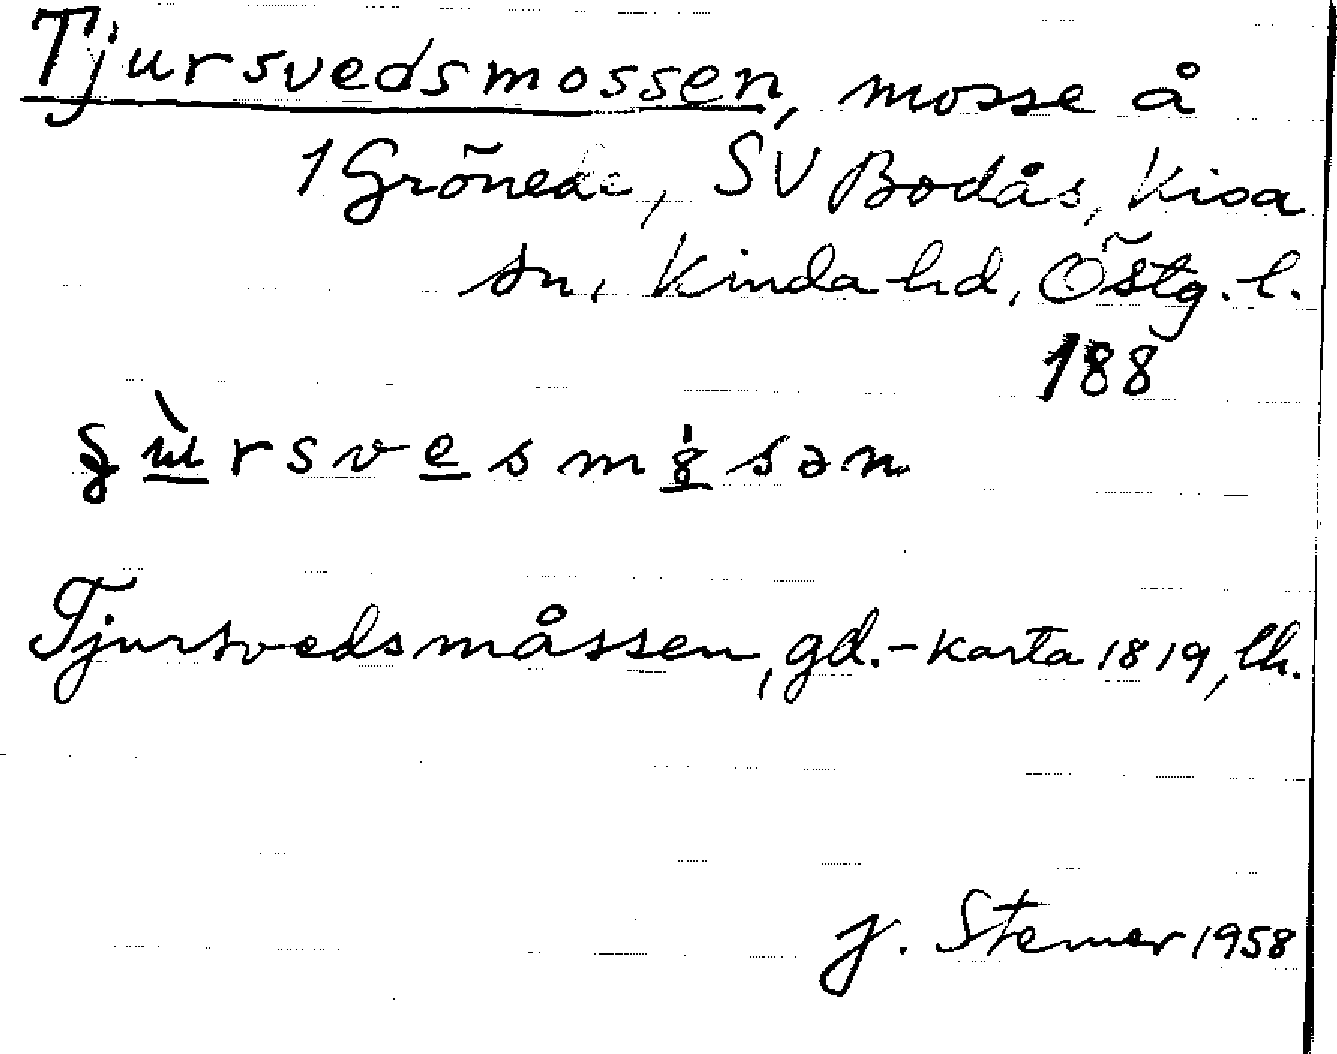 Tjursvedsmossen, mosse å
1 Grönede, SV Bodås, Kisa
sn, Kinda hd, Östg. l.
188
Tjursvedsmåssen, gd.-karta 1819, lh.
J. Stemer 1958